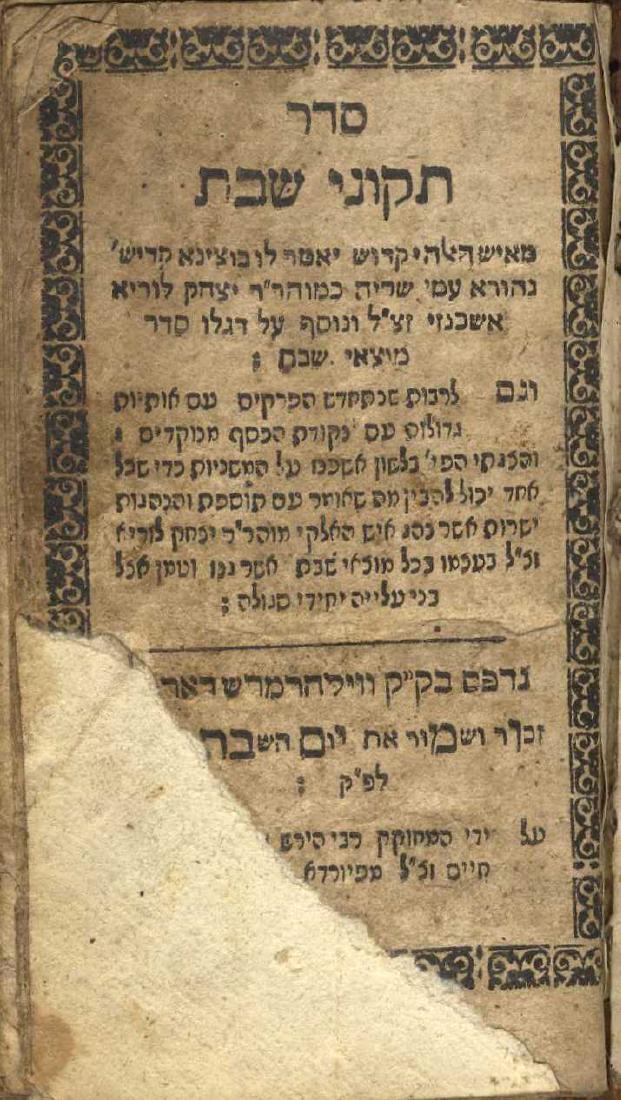 סדר
תקוני שבת
מאיש האלהי קדוש יאמר לו בוצינא קדיש׳
נהורא עמי׳ שריה כמוהר״ר יצחק לוריא
אשכנזי זצ״ל ונוסף על דגלו סדר
מוצאי שבת :
וגם לרבות שנתחדש הפרקים עם אותיות
גדולות עם נקודת הכסף מנוקדים :
והצגתי הפי׳ בלשון אשכנז על המשניות כדי שכל
אחד יכול להבין מה שאומר עם תוספת והנהגות
ישרות אשר נהג איש האלקי מוהר״ר יצחק לוריא
זצ״ל בעצמו בכל מוצאי שבת אשר גנוז וטמון אצל
בני עלייה יחידי סגולה :
נדפס בק״ק ווילהרמדש דאר
זכור ושמור את יום השבת
לפ״ק :
על ידי המחוקק רבי הירש
חיים זצ״ל מפיורדא